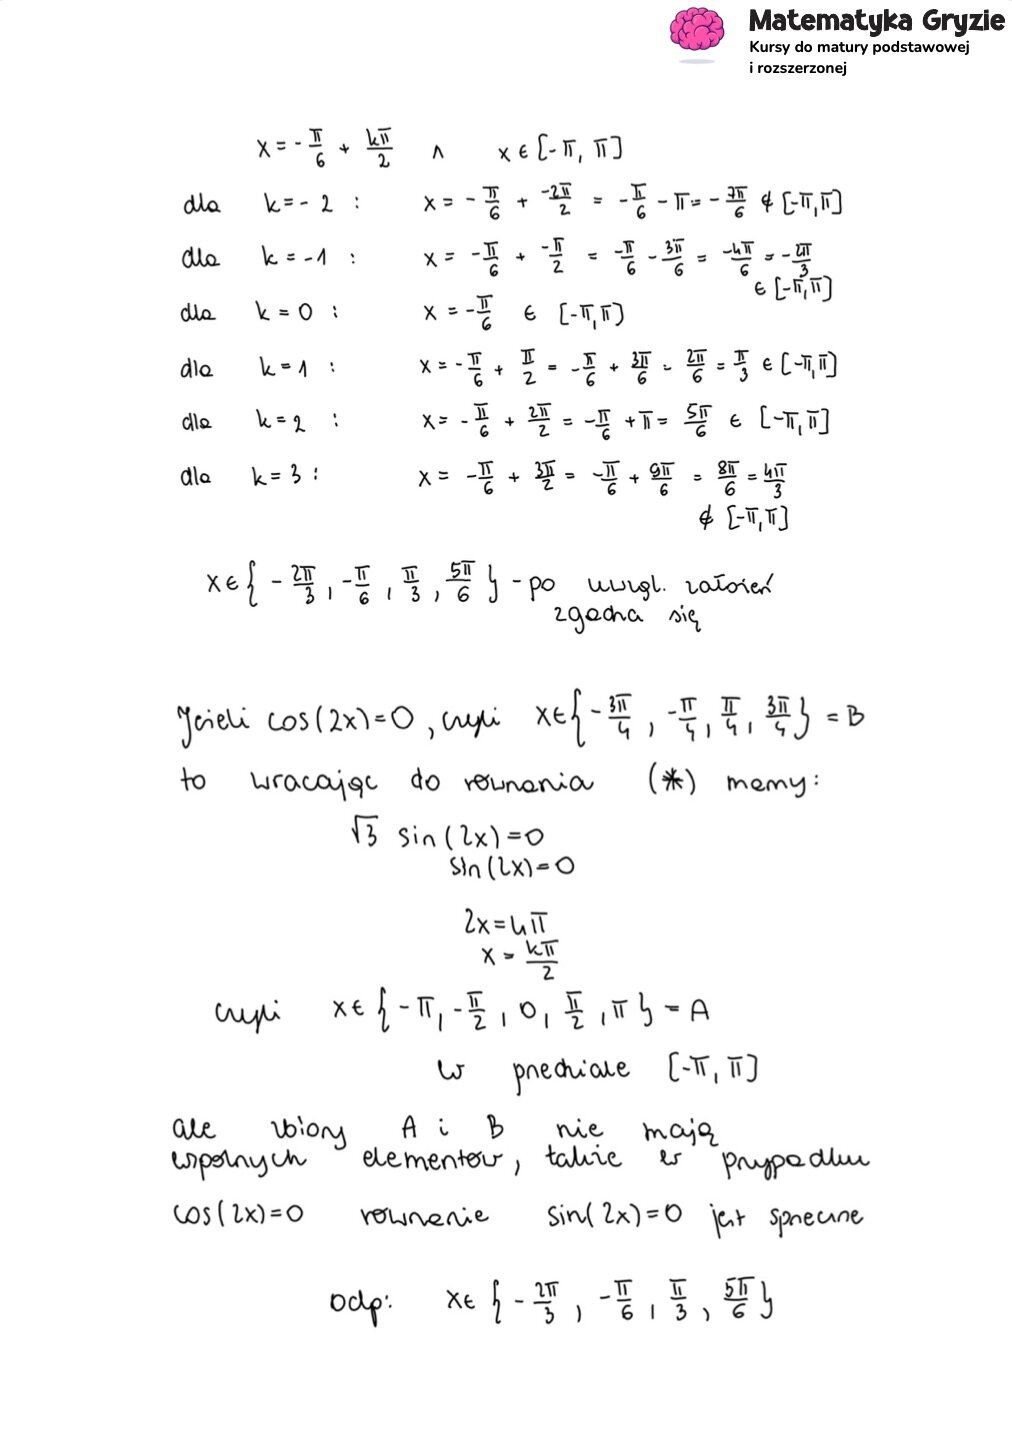 Matematyka Gryzie
Kursy do matury podstawowej
i rozszerzonej
x = -π/6 + kπ/2 ∧ x ∈ [-π, π]
dla k = -2 : x = -π/6 + -2π/2 = -π/6 - π = -7π/6 ∉ [-π, π]
dla k = -1 : x = -π/6 + -π/2 = -π/6 - 3π/6 = -4π/6 = -2π/3
∈ [-π, π]
dla k = 0 : x = -π/6 ∈ [-π, π)
dla k = 1 : x = -π/6 + π/2 = -π/6 + 3π/6 = 2π/6 = π/3 ∈ [-π, π]
dla k = 2 : x = -π/6 + 2π/2 = -π/6 + π = 5π/6 ∈ [-π, π]
dla k = 3 : x = -π/6 + 3π/2 = -π/6 + 9π/6 = 8π/6 = 4π/3
∉ [-π, π]
x ∈ { -2π/3, -π/6, π/3, 5π/6 } - po uwzgl. założeń
zgadza się
Jeżeli cos(2x)=0, czyli x ∈ { -3π/4, -π/4, π/4, 3π/4 } = B
to wracając do równania (*) mamy:
√3 sin(2x)=0
sin(2x)=0
2x = kπ
x = kπ/2
czyli x ∈ { -π, -π/2, 0, π/2, π } = A
w przedziale [-π, π]
ale zbiory A i B nie mają
wspólnych elementów, także w przypadku
cos(2x)=0 równanie sin(2x)=0 jest sprzeczne
odp: x ∈ { -2π/3, -π/6, π/3, 5π/6 }